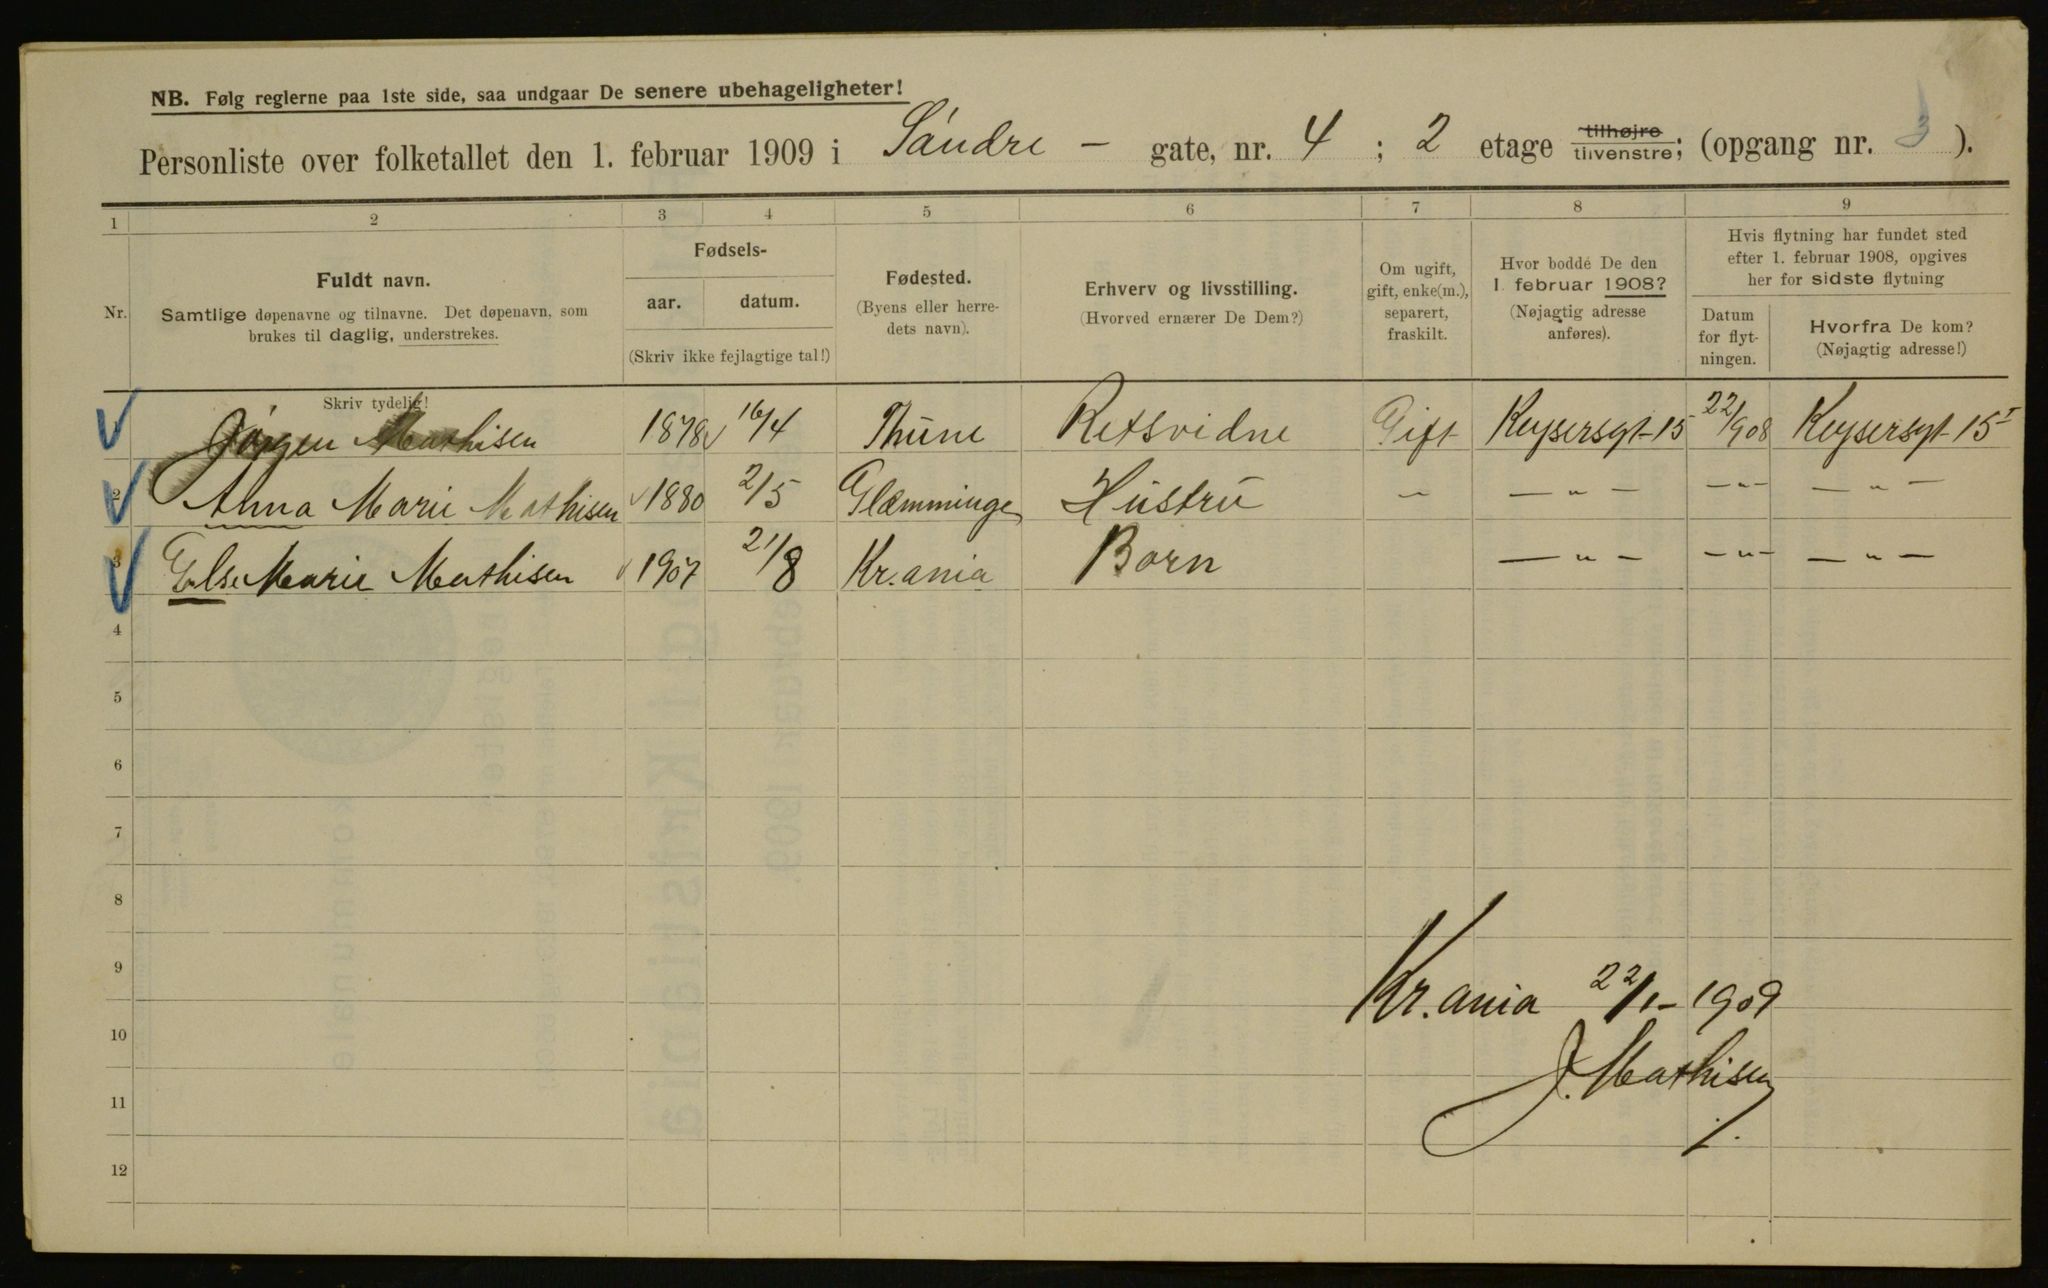 NB. Følg reglerne paa 1ste side, saa undgaar De senere ubehageligheter!
Personliste over folketallet den 1. februar 1909 i Søndre - gate, nr. 4 ; 2 etage tilhøjre tilvenstre; (opgang nr. 3 ).
1 2 3 4 5 6 7 8 9
Nr.
Fuldt navn.
Samtlige døpenavne og tilnavne. Det døpenavn, som
brukes til daglig, understrekes.
Skriv tydelig!
Fødsels-
aar. datum.
(Skriv ikke fejlagtige tal!)
Fødested.
(Byens eller herre-
dets navn).
Erhverv og livsstilling.
(Hvorved ernærer De Dem?)
Om ugift,
gift, enke(m.),
separert,
fraskilt.
Hvor bodde De den
1. februar 1908?
(Nøjagtig adresse
anføres).
Hvis flytning har fundet sted
efter 1. februar 1908, opgives
her for sidste flytning
Datum
for flyt-
ningen.
Hvorfra De kom?
(Nøjagtig adresse!)
Jørgen Mathisen 1878 16/4 Thune Retsvidne Gift Keysersgt 15 22/9 08 Keysersgt 15 I
2 Anna Marie Mathisen 1880 2/5 Glemminge Hustru - — " — — " — — " —
3 Else Marie Mathisen 1907 21/8 Kr.ania Barn — " — — " — — " —
4
5
6
7
8
9
10
11
12
Kr.ania 22/1- 1909
J. Mathisen